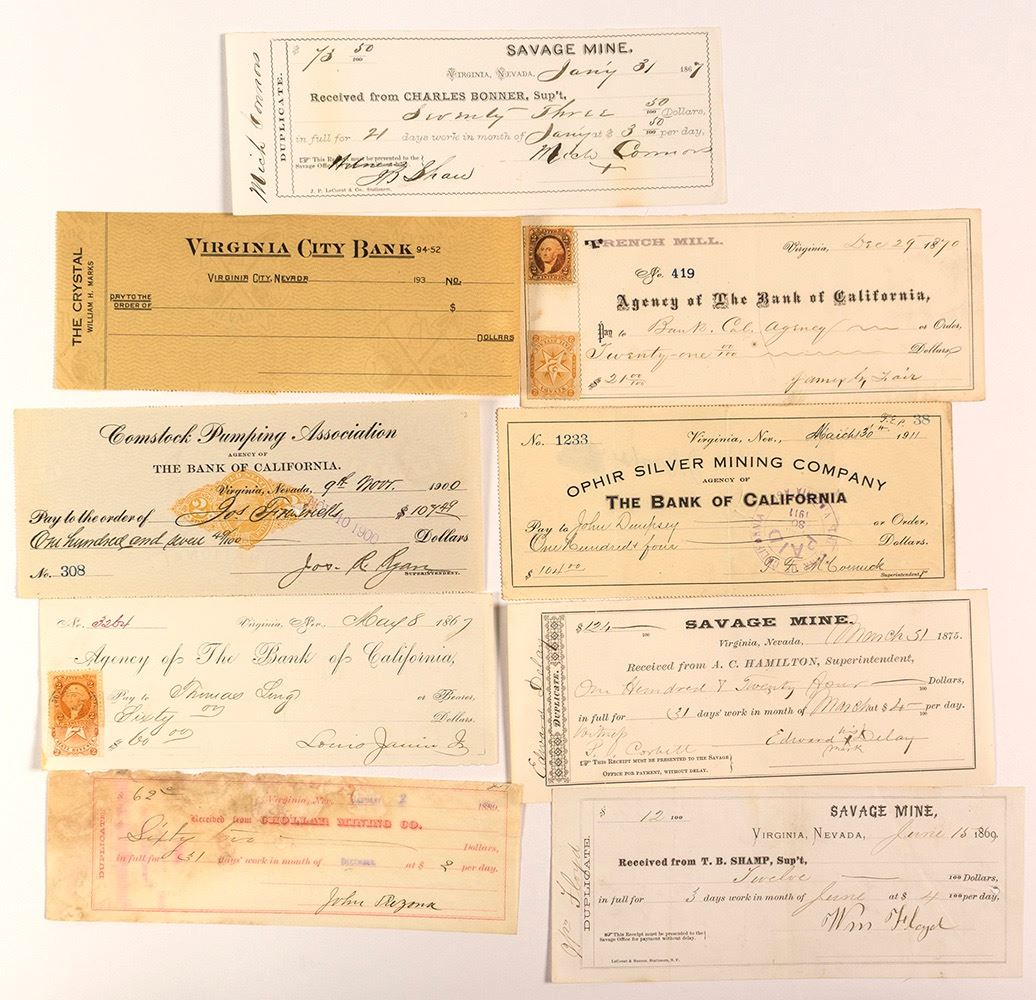 Mich Connors
DUPLICATE.
$ 73 50/100
SAVAGE MINE,
VIRGINIA, NEVADA, Jany 31 1867
Received from CHARLES BONNER, Sup't,
Seventy Three 50/100 Dollars,
in full for 21 days work in month of Jany at $ 3 50/100 per day,
This Receipt must be presented to the
Savage Office
Witness
J B Shaw
Mich Connors
X
J. P. LeCount & Co. Stationers,
THE CRYSTAL
WILLIAM H. MARKS
VIRGINIA CITY BANK 94-52
VIRGINIA CITY, NEVADA 193 NO.
PAY TO THE
ORDER OF $
DOLLARS
TRENCH MILL.
Virginia, Dec 29 1870
No. 419
Agency of The Bank of California,
Pay to Bank. Cal. Agency or Order,
Twenty-one 00/100 Dollars
$ 21 00/100
James G. Fair
Comstock Pumping Association
AGENCY OF
THE BANK OF CALIFORNIA.
Virginia, Nevada, 9th Novr. 1900
Pay to the order of Jos $ 107 49
One hundred and seven 49/100 Dollars
10 1900
No. 308
Jos. R. Ryan
SUPERINTENDENT.
38
No. 1233 Virginia, Nev., March 30th 1911
OPHIR SILVER MINING COMPANY
AGENCY OF
THE BANK OF CALIFORNIA
Pay to John Dempsey or Order,
One Hundred & four Dollars.
$ 104.00
PAID
1911
T. F. McCormick
Superintendent
No. 3264 Virginia, Nev. May 8 1867
Agency of The Bank of California,
Pay to Thomas or Bearer,
Sixty Dollars.
$ 60
Louis Janin Jr
Edward Delay
DUPLICATE.
$124 100
SAVAGE MINE.
Virginia, Nevada, March 31 1875.
Received from A. C. HAMILTON, Superintendent,
One Hundred & Twenty four 100 Dollars,
in full for 31 days' work in month of March at $ 4 100 per day.
Witness
Corbett
Edward Delay
his
X
mark
THIS RECEIPT MUST BE PRESENTED TO THE SAVAGE
OFFICE FOR PAYMENT, WITHOUT DELAY.
DUPLICATE
62
Virginia, Nev. JANUARY 2 1880.
Received from CHOLLAR MINING CO.
Sixty two Dollars,
in full for 31 days' work in month of DECEMBER at $ 2 per day.
John Rezona
Wm Floyd
DUPLICATE.
$ 12 100
SAVAGE MINE,
VIRGINIA, NEVADA, June 15 1869
Received from T. B. SHAMP, Sup't,
Twelve 100 Dollars,
in full for 3 days work in month of June at $ 4 100 per day,
Wm Floyd
This Receipt must be presented to the
Savage Office for payment without delay.